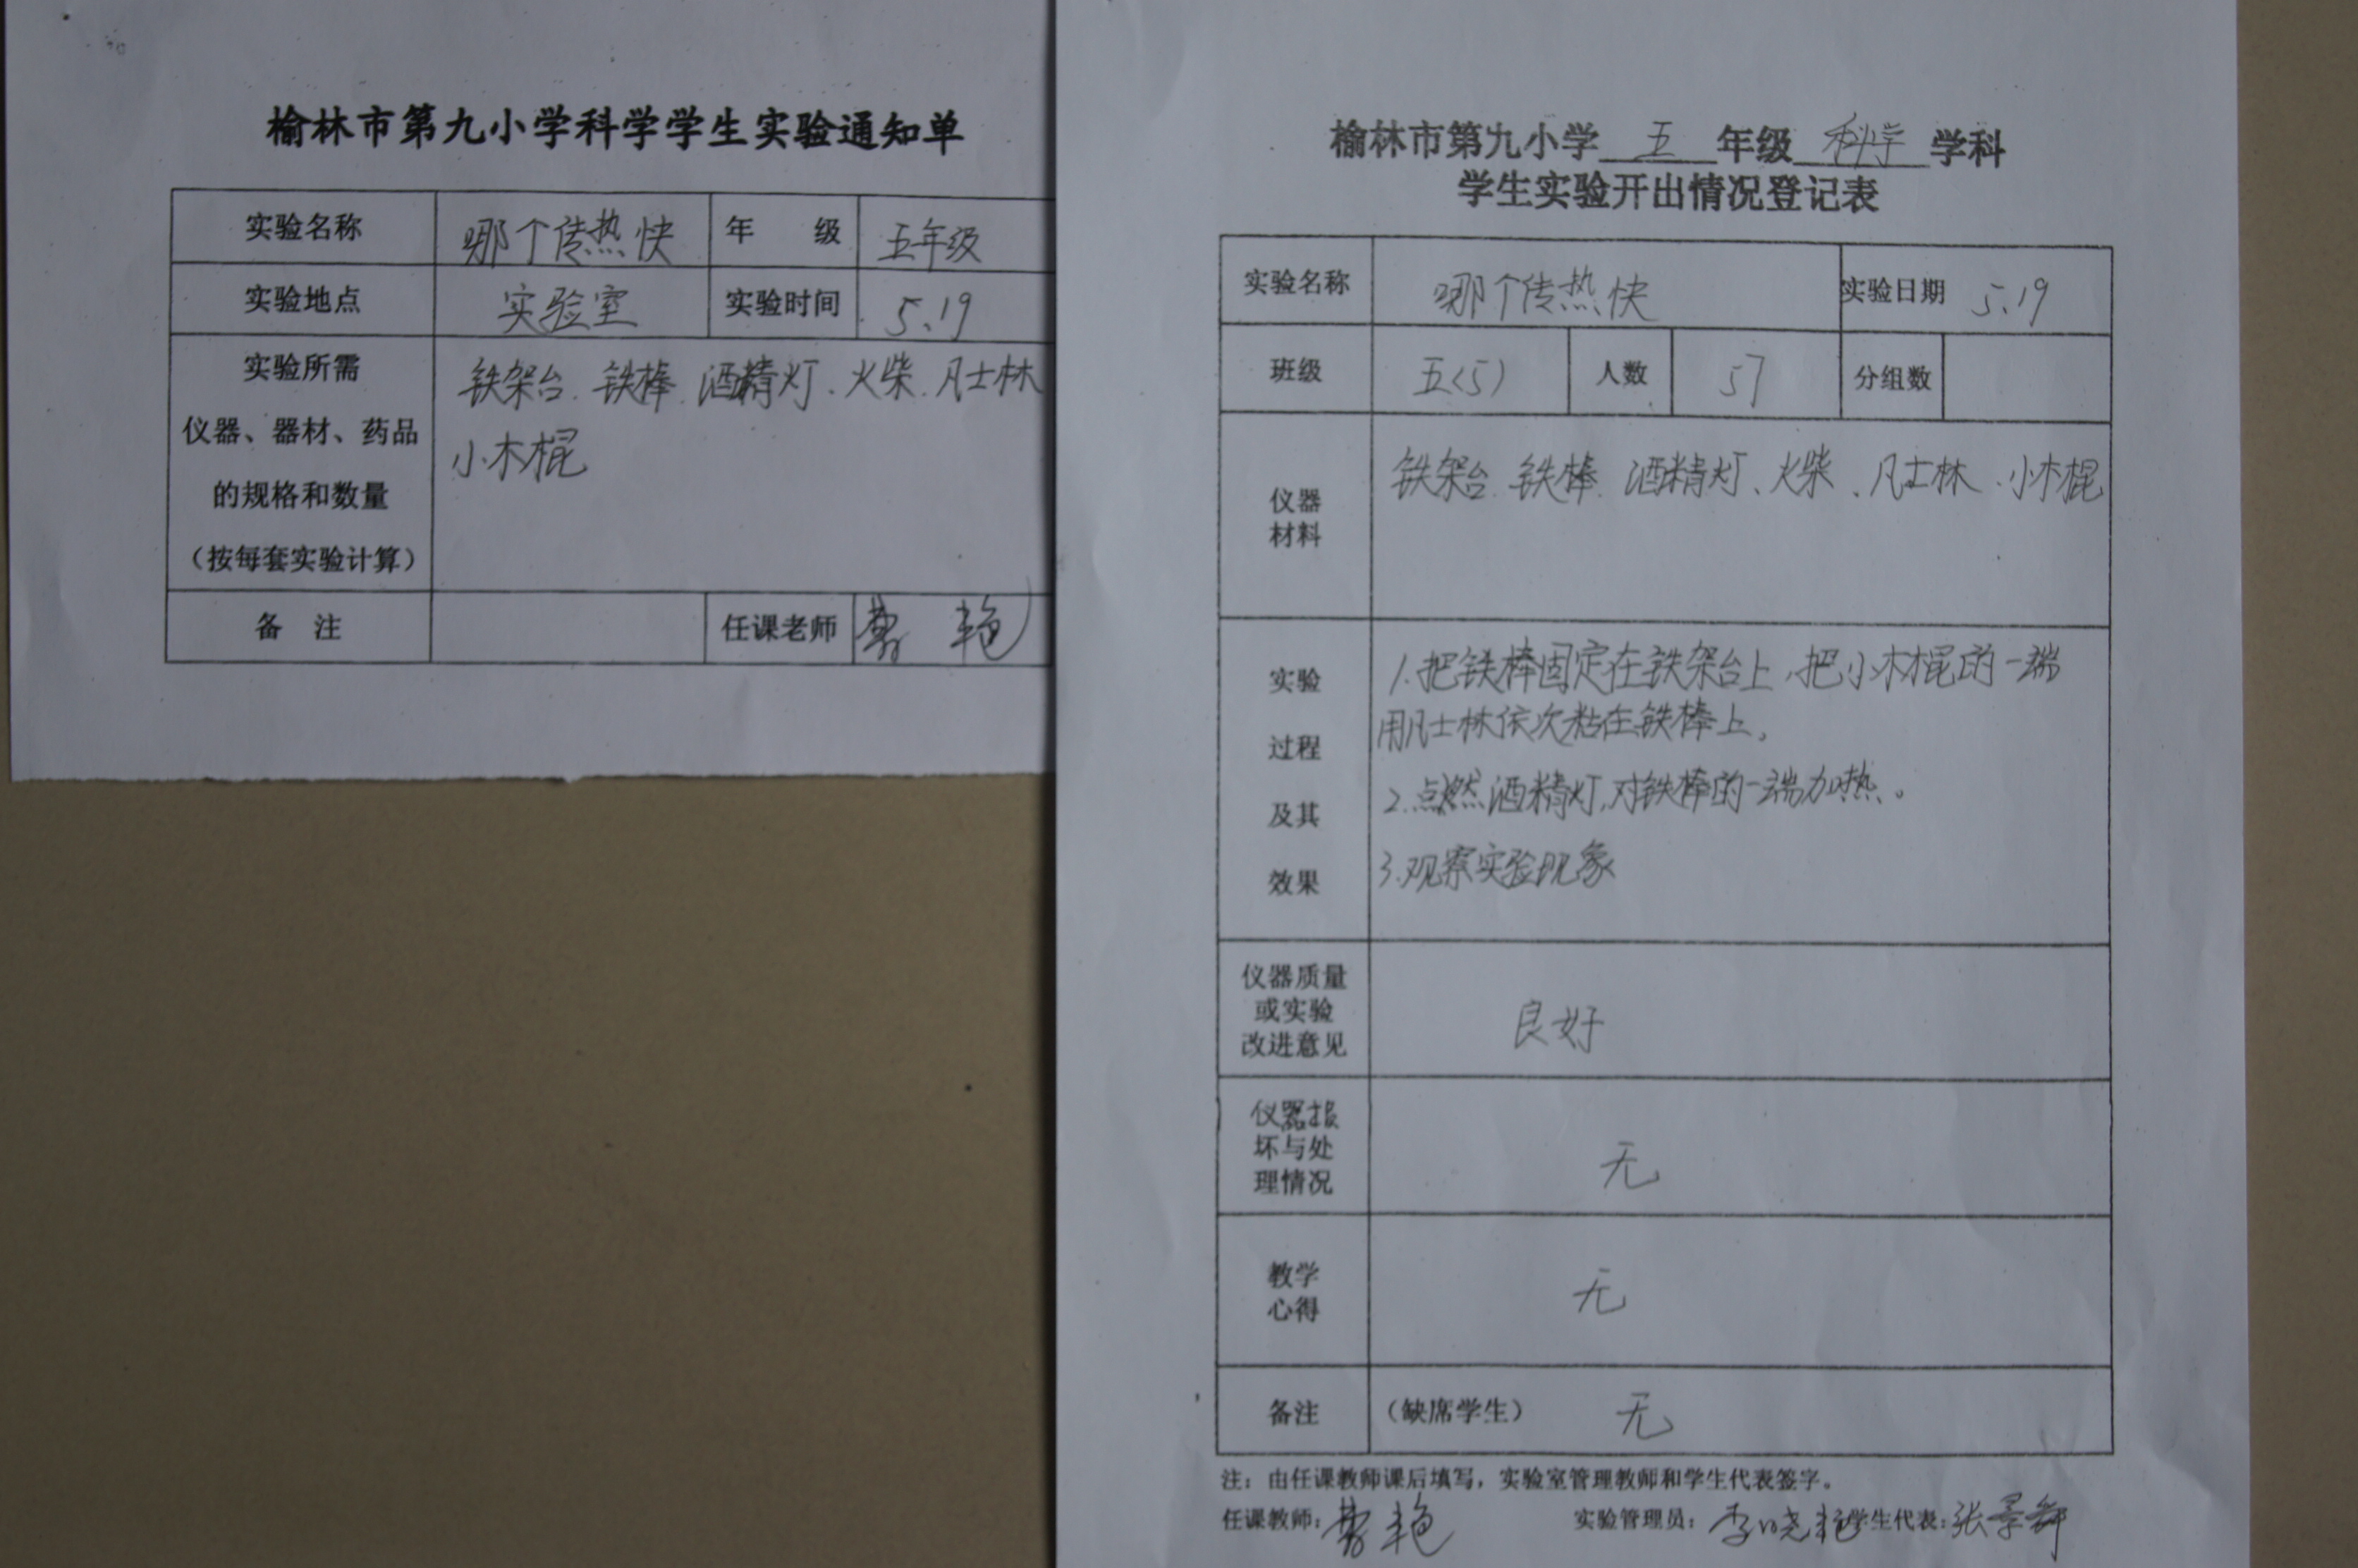 榆林市第九小学科学学生实验通知单
实验名称 哪个传热快 年 级 五年级
实验地点 实验室 实验时间 5.19
实验所需
仪器、器材、药品
的规格和数量
（按每套实验计算）
铁架台、铁棒、酒精灯、火柴、凡士林
小木棍
备 注 任课老师 艳
榆林市第九小学 五 年级 科学 学科
学生实验开出情况登记表
实验名称 哪个传热快 实验日期 5.19
班级 五(5) 人数 57 分组数
仪器
材料
铁架台、铁棒、酒精灯、火柴、凡士林、小木棍
实验
过程
及其
效果
1.把铁棒固定在铁架台上,把小木棍的一端
用凡士林依次粘在铁棒上,
2.点燃酒精灯,对铁棒的一端加热。
3.观察实验现象
仪器质量
或实验
改进意见
良好
仪器损
坏与处
理情况
无
教学
心得
无
备注 （缺席学生） 无
注：由任课教师课后填写，实验室管理教师和学生代表签字。
任课教师: 艳 实验管理员: 李晓艳 学生代表: 张景